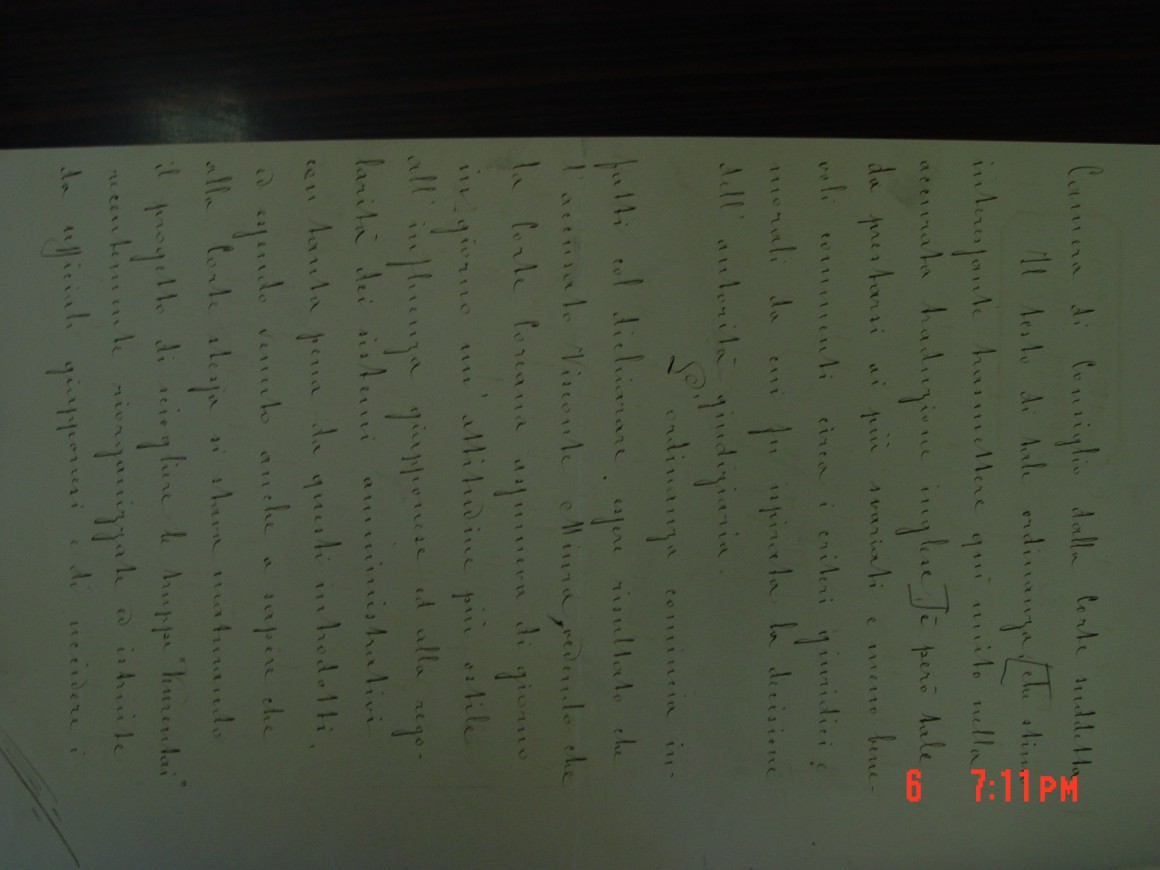 Camera di Consiglio dalla Corte suddetta
Il testo di tale ordinanza, [che stimo
interessante trasmettere qui unito nella
accurata traduzione inglese] è però tale
da prestarsi ai più svariati e meno bene-
voli commenti circa i criteri giuridici e
morali da cui fu ispirata la decisione
dell' autorità giudiziaria.
ordinanza comincia in-
fatti col dichiarare, essere risultato che
l'accusato Visconte Miura, vedendo che
la Corte Coreana assumeva di giorno
in giorno un' attitudine più ostile
all' influenza giapponese ed alla rego-
larità dei sistemi amministrativi
con tanta pena da questi introdotti,
ed essendo venuto anche a sapere che
alla Corte stessa si stava maturando
il progetto di sciogliere le truppe "Kunrentai"
recentemente riorganizzate ed istruite
da ufficiali giapponesi e di uccidere i
6 7:11 PM